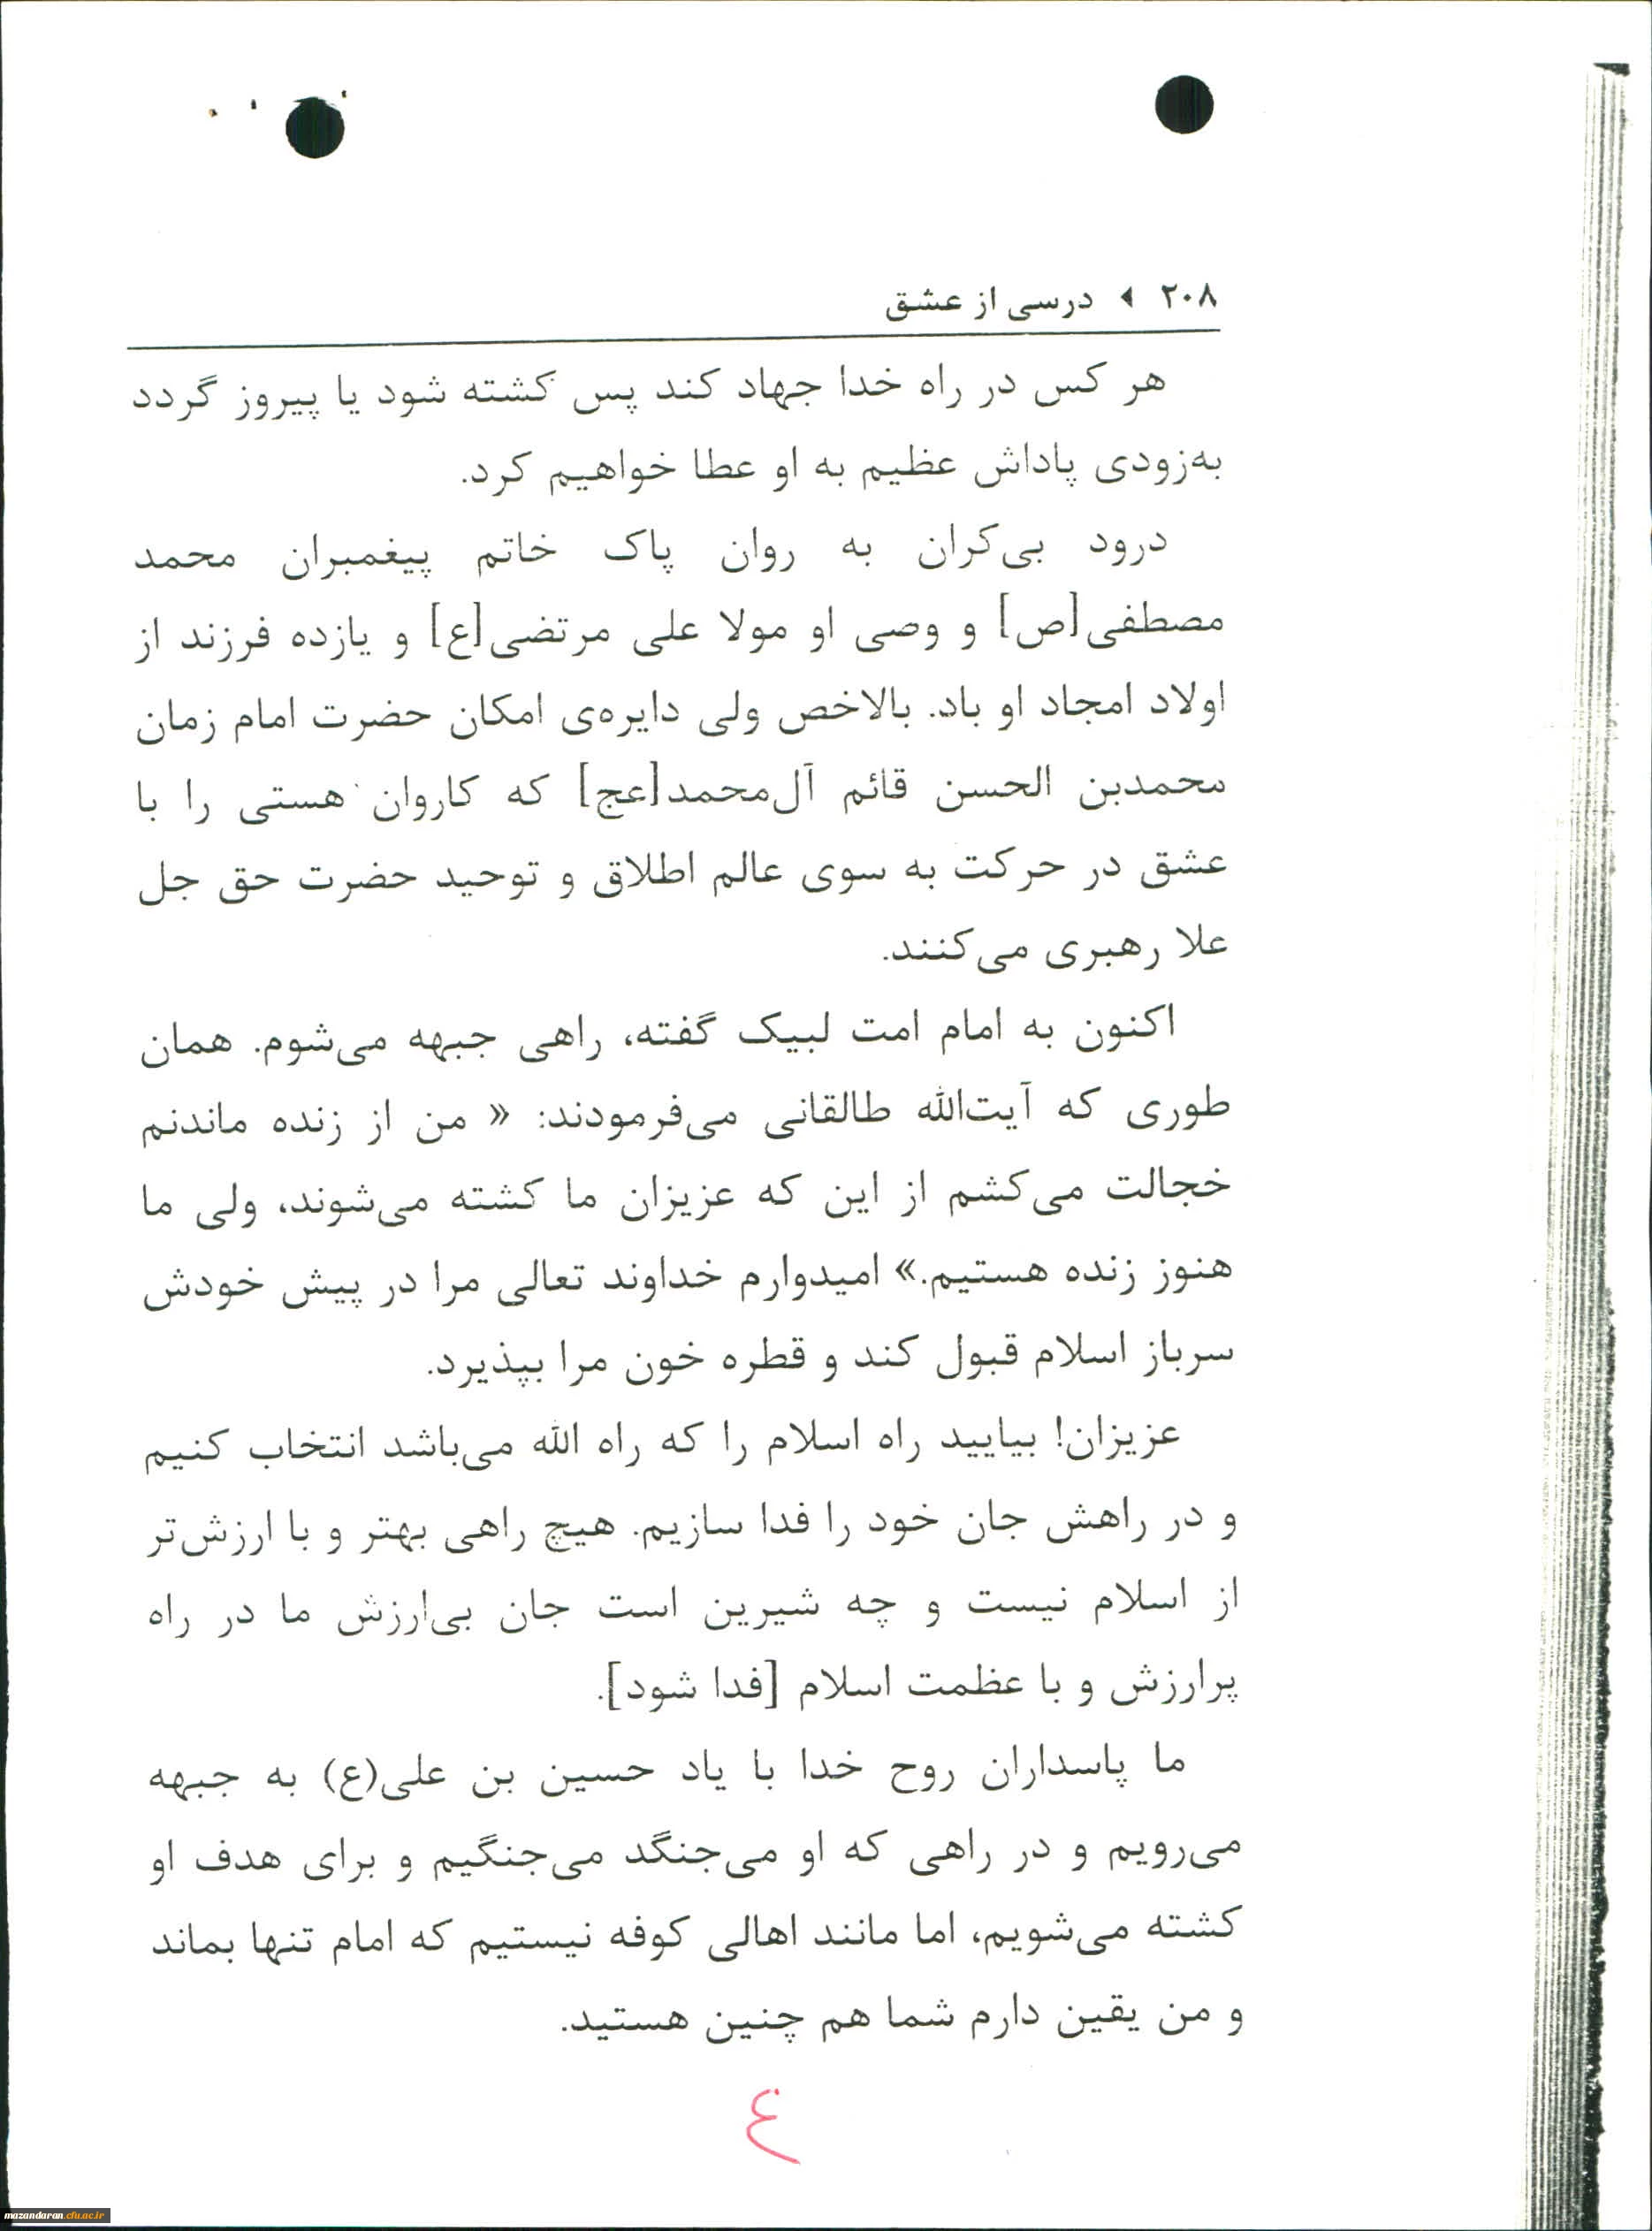 ۲۰۸ ◂ درسی از عشق
هر کس در راه خدا جهاد کند پس کشته شود یا پیروز گردد
به‌زودی پاداش عظیم به او عطا خواهیم کرد.
درود بی‌کران به روان پاک خاتم پیغمبران محمد
مصطفی[ص] و وصی او مولا علی مرتضی[ع] و یازده فرزند از
اولاد امجاد او باد. بالاخص ولی دایره‌ی امکان حضرت امام زمان
محمدبن الحسن قائم آل‌محمد[عج] که کاروان هستی را با
عشق در حرکت به سوی عالم اطلاق و توحید حضرت حق جل
علا رهبری می‌کنند.
اکنون به امام امت لبیک گفته، راهی جبهه می‌شوم. همان
طوری که آیت‌الله طالقانی می‌فرمودند: « من از زنده ماندنم
خجالت می‌کشم از این که عزیزان ما کشته می‌شوند، ولی ما
هنوز زنده هستیم.» امیدوارم خداوند تعالی مرا در پیش خودش
سرباز اسلام قبول کند و قطره خون مرا بپذیرد.
عزیزان! بیایید راه اسلام را که راه الله می‌باشد انتخاب کنیم
و در راهش جان خود را فدا سازیم. هیچ راهی بهتر و با ارزش‌تر
از اسلام نیست و چه شیرین است جان بی‌ارزش ما در راه
پرارزش و با عظمت اسلام [فدا شود].
ما پاسداران روح خدا با یاد حسین بن علی(ع) به جبهه
می‌رویم و در راهی که او می‌جنگد می‌جنگیم و برای هدف او
کشته می‌شویم، اما مانند اهالی کوفه نیستیم که امام تنها بماند
و من یقین دارم شما هم چنین هستید.
٤
mazandaran.cfu.ac.ir